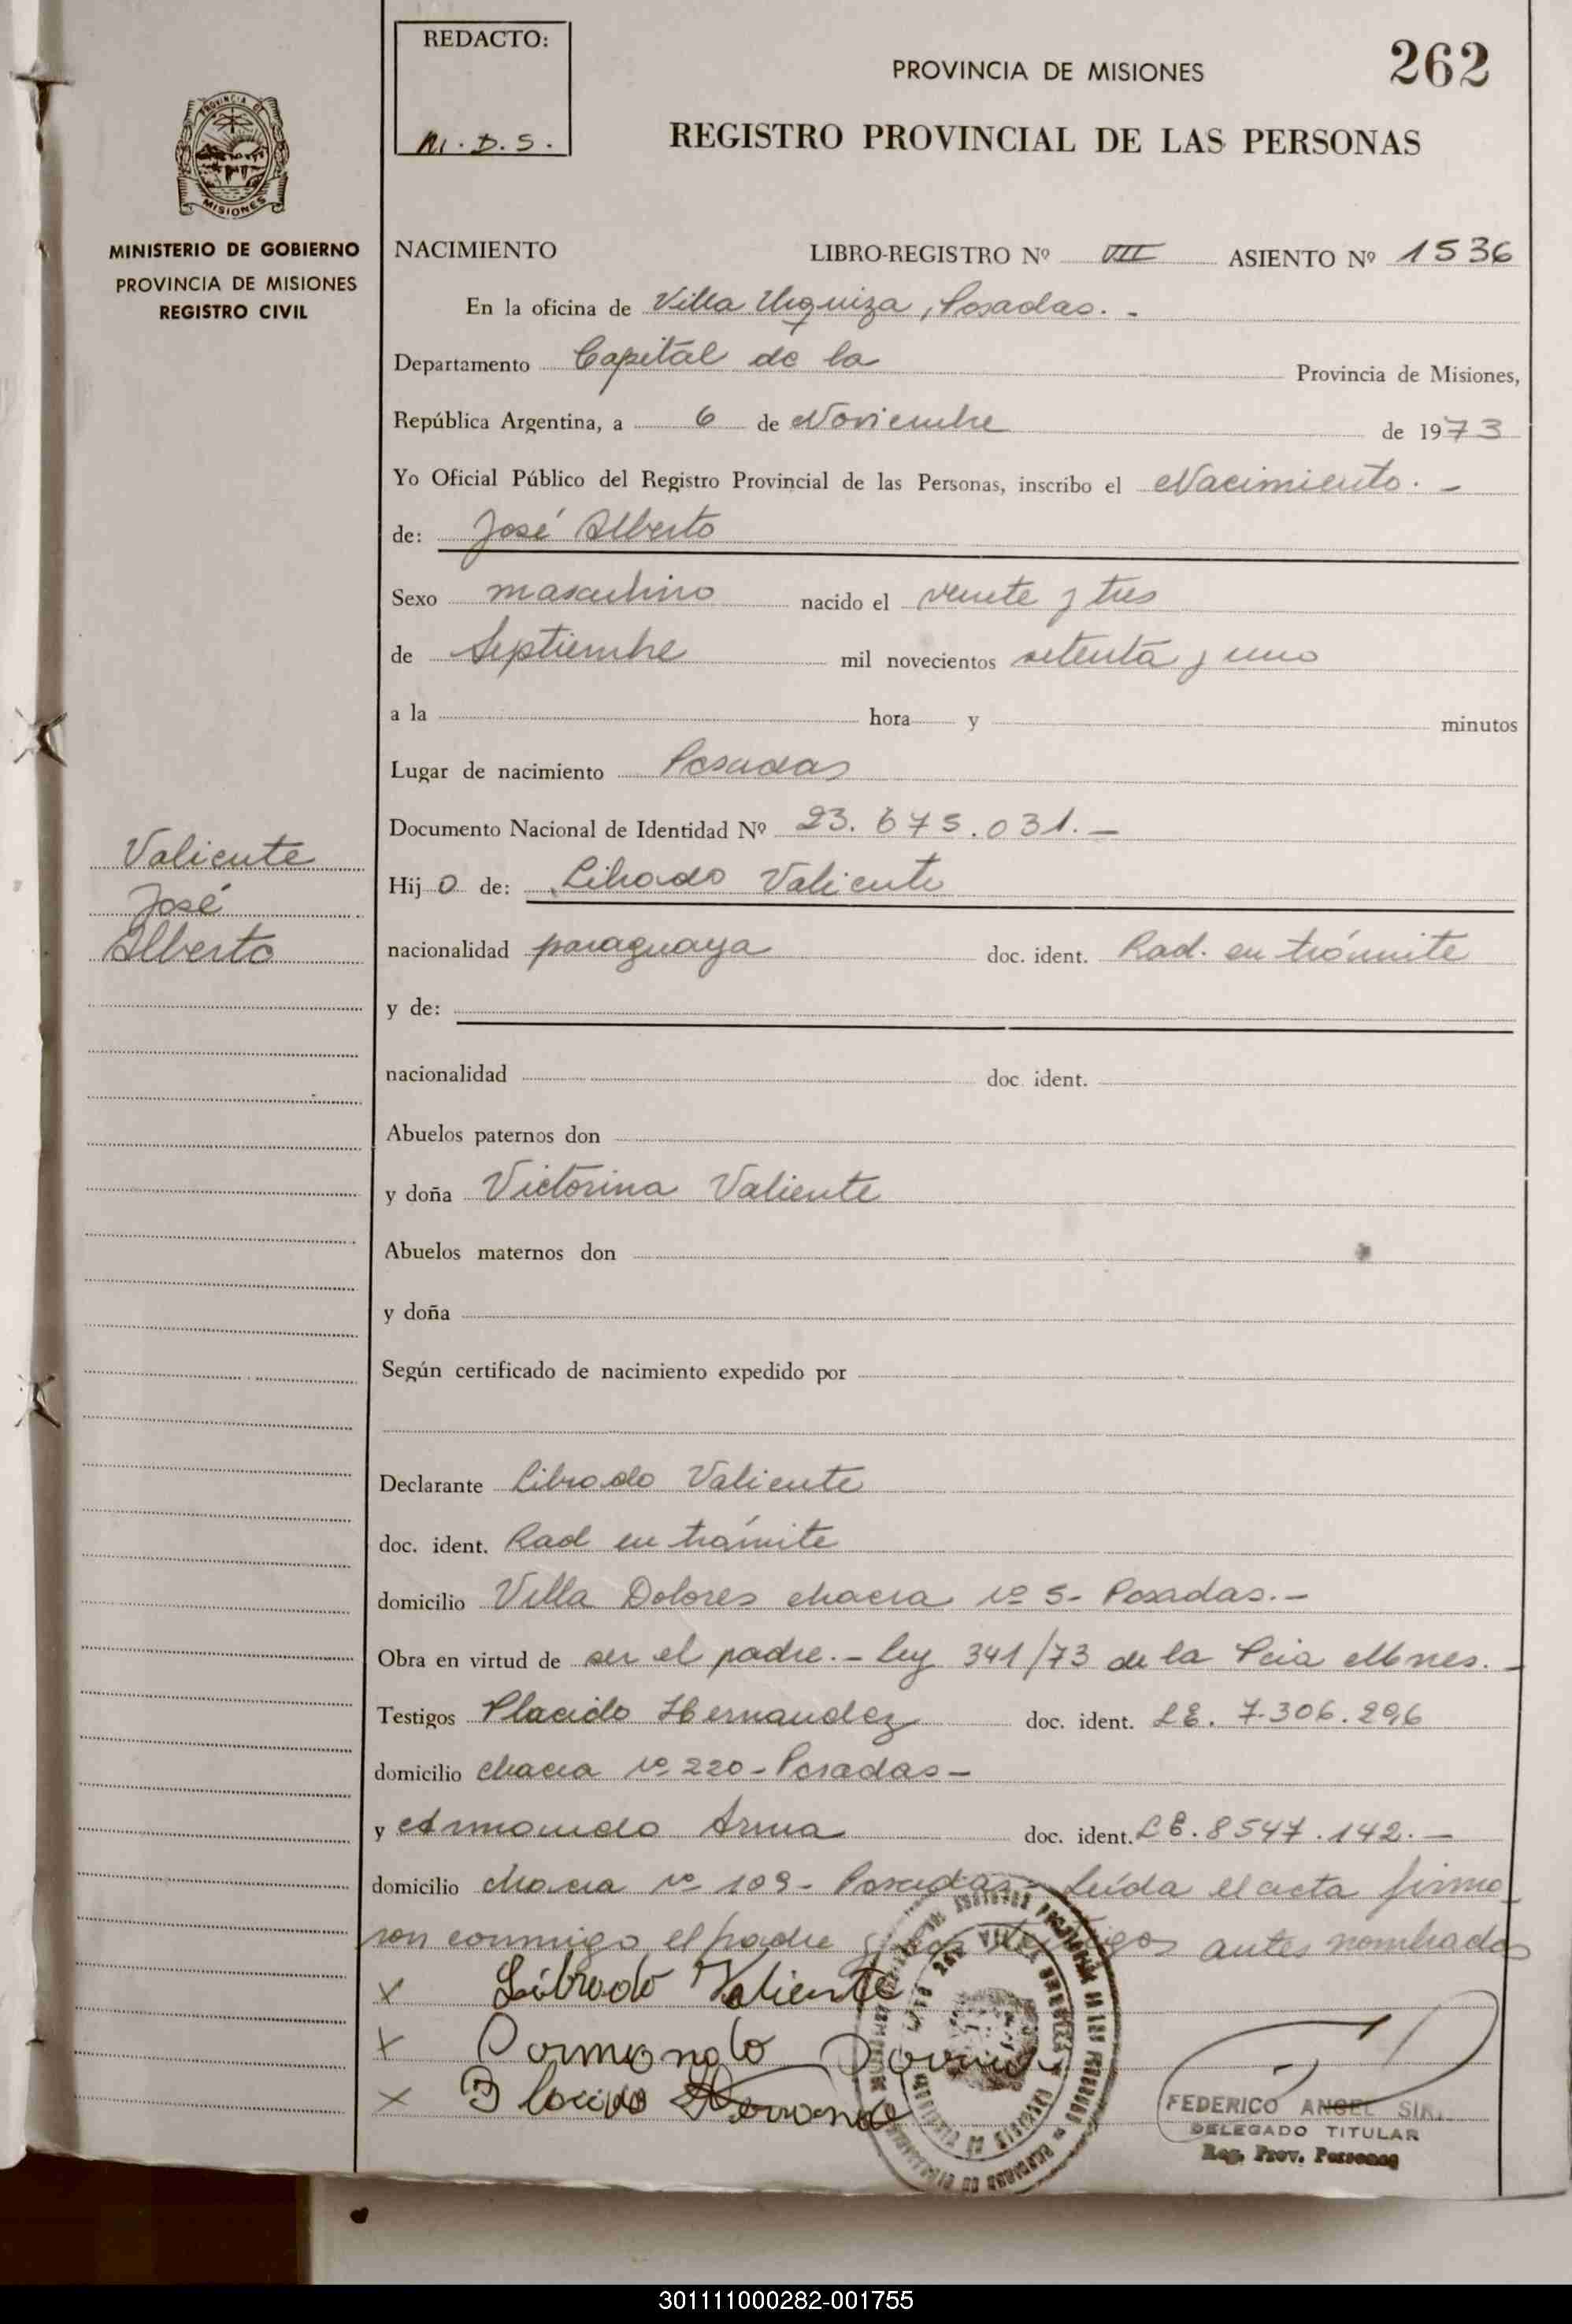 REDACTO:
M. D. S.
PROVINCIA DE MISIONES
262
REGISTRO PROVINCIAL DE LAS PERSONAS
PROVINCIA DE
MISIONES
MINISTERIO DE GOBIERNO
PROVINCIA DE MISIONES
REGISTRO CIVIL
NACIMIENTO LIBRO-REGISTRO Nº VIII ASIENTO Nº 1536
En la oficina de Villa Urquiza, Posadas. -
Departamento Capital de la Provincia de Misiones,
República Argentina, a 6 de Noviembre de 1973
Yo Oficial Público del Registro Provincial de las Personas, inscribo el Nacimiento. -
de: José Alberto
Sexo masculino nacido el veinte y tres
de Septiembre mil novecientos setenta y uno
a la hora y minutos
Lugar de nacimiento Posadas
Documento Nacional de Identidad Nº 23.675.031. -
Valiente
José
Alberto
Hij o de: Librado Valiente
nacionalidad paraguaya doc. ident. Rad. en trámite
y de:
nacionalidad doc. ident.
Abuelos paternos don
y doña Victorina Valiente
Abuelos maternos don
y doña
Según certificado de nacimiento expedido por
Declarante Librado Valiente
doc. ident. Rad en trámite
domicilio Villa Dolores chacra nº 5- Posadas. -
Obra en virtud de ser el padre. - ley 341/73 de la Pcia Mnes. -
Testigos Placido Hernandez doc. ident. L.E. 7.306.296
domicilio chacra nº 220 - Posadas -
y Armando doc. ident. L.E. 8547.142. -
domicilio chacra nº 109 - Posadas - Leída el acta firma
ron conmigo el padre y los testigos antes nombrados
x Librado Valiente
x
x
FEDERICO ANGEL
DELEGADO TITULAR
Reg. Prov. Personas
301111000282-001755